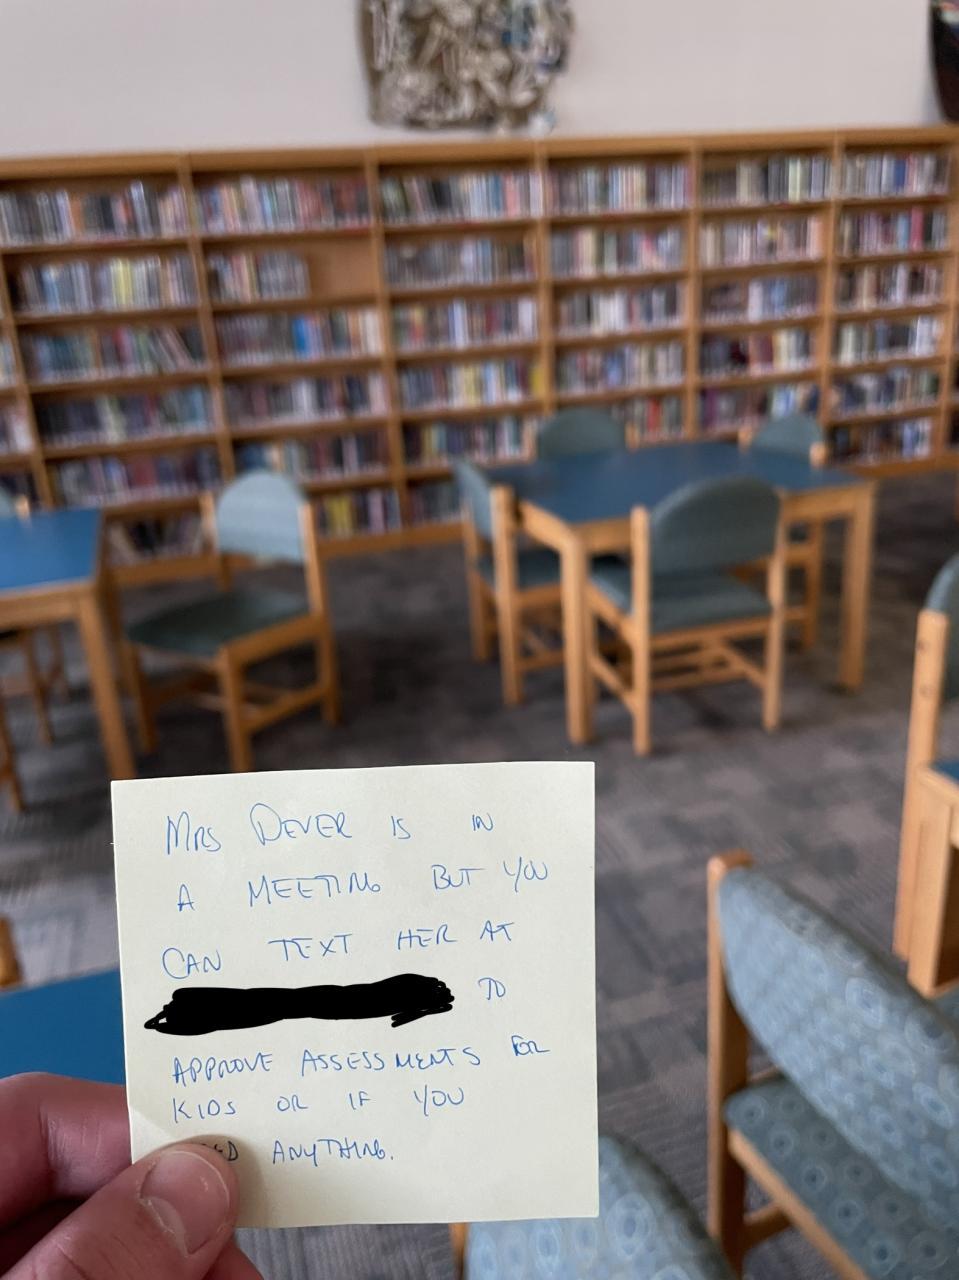 MRS DEVER IS IN
A MEETING BUT YOU
CAN TEXT HER AT
TO
APPROVE ASSESSMENTS FOR
KIDS OR IF YOU
ANYTHING.